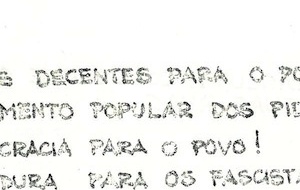 S DECENTES PARA O PO
MENTO POPULAR DOS PIE
CRACIA PARA O POVO!
DURA PARA OS FASCIST